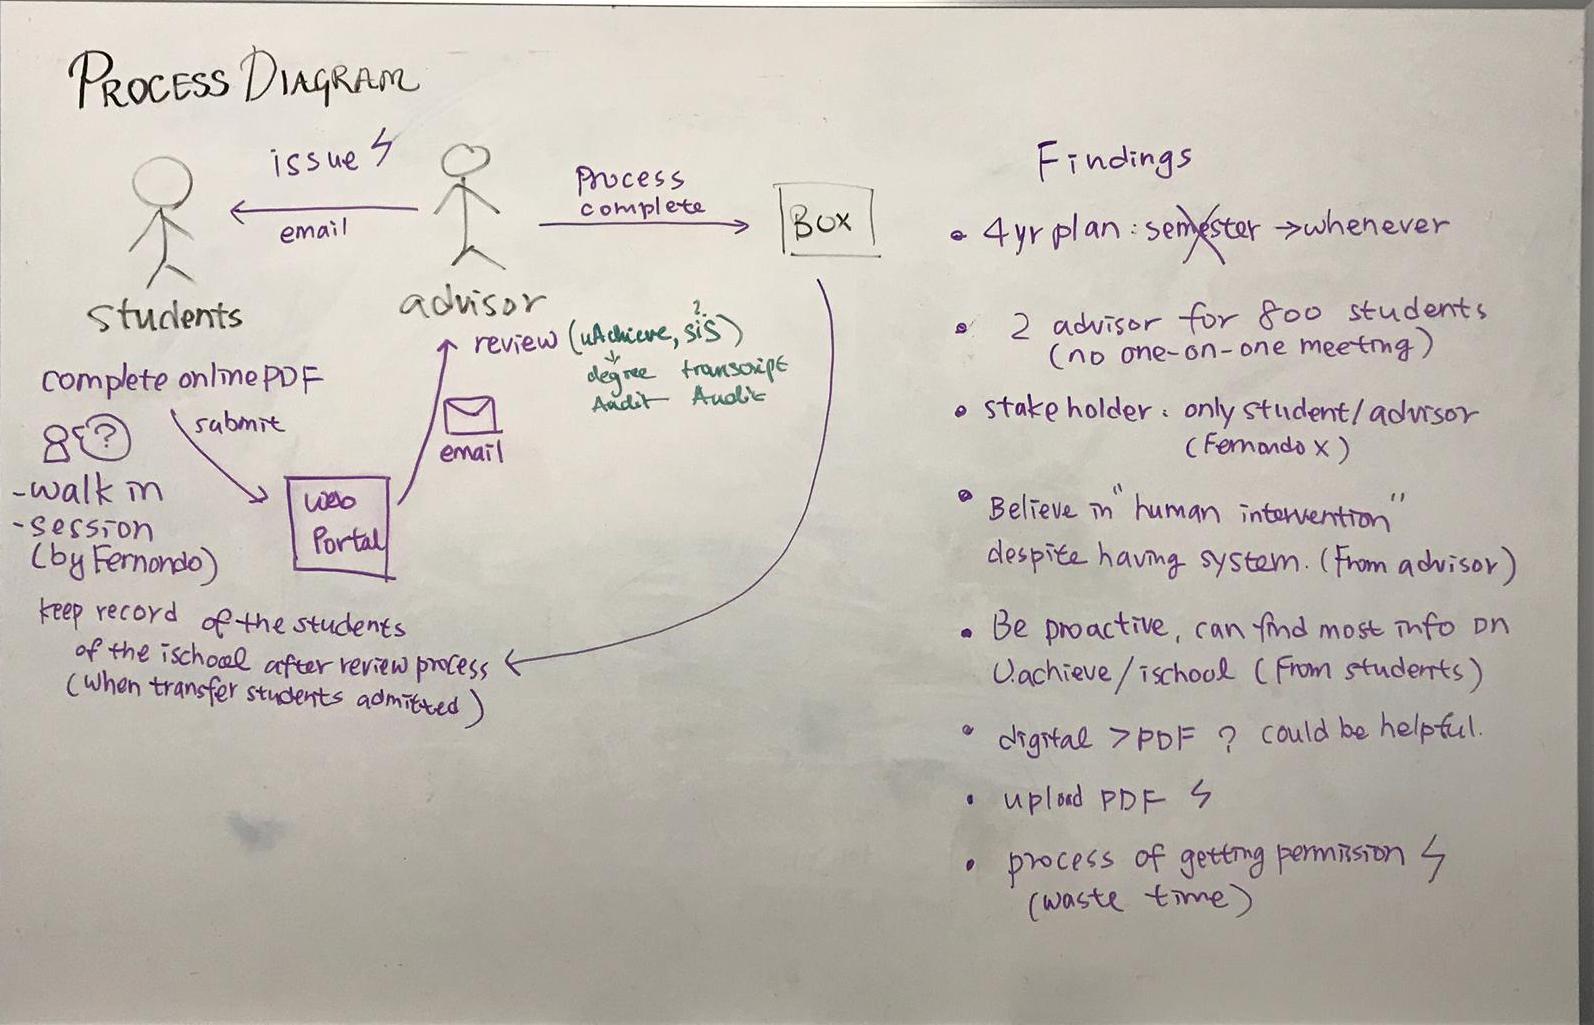 PROCESS DIAGRAM
issue
email
students
advisor
Process
complete
BOX
review (uAchieve, SIS)
?
degree
Audit
transcript
Audit
complete online PDF
submit
?
- walk in
- session
(by Fernondo)
Web
Portal
email
keep record of the students
of the ischool after review process
(when transfer students admitted)
Findings
• 4yr plan : semester → whenever
• 2 advisor for 800 students
(no one-on-one meeting)
• stakeholder : only student/advisor
(Fernondo x)
• Believe in "human intervention"
despite having system. (From advisor)
• Be proactive, can find most info on
U.achieve/ischool (From students)
• digital > PDF ? could be helpful.
• upload PDF
• process of getting permission
(waste time)